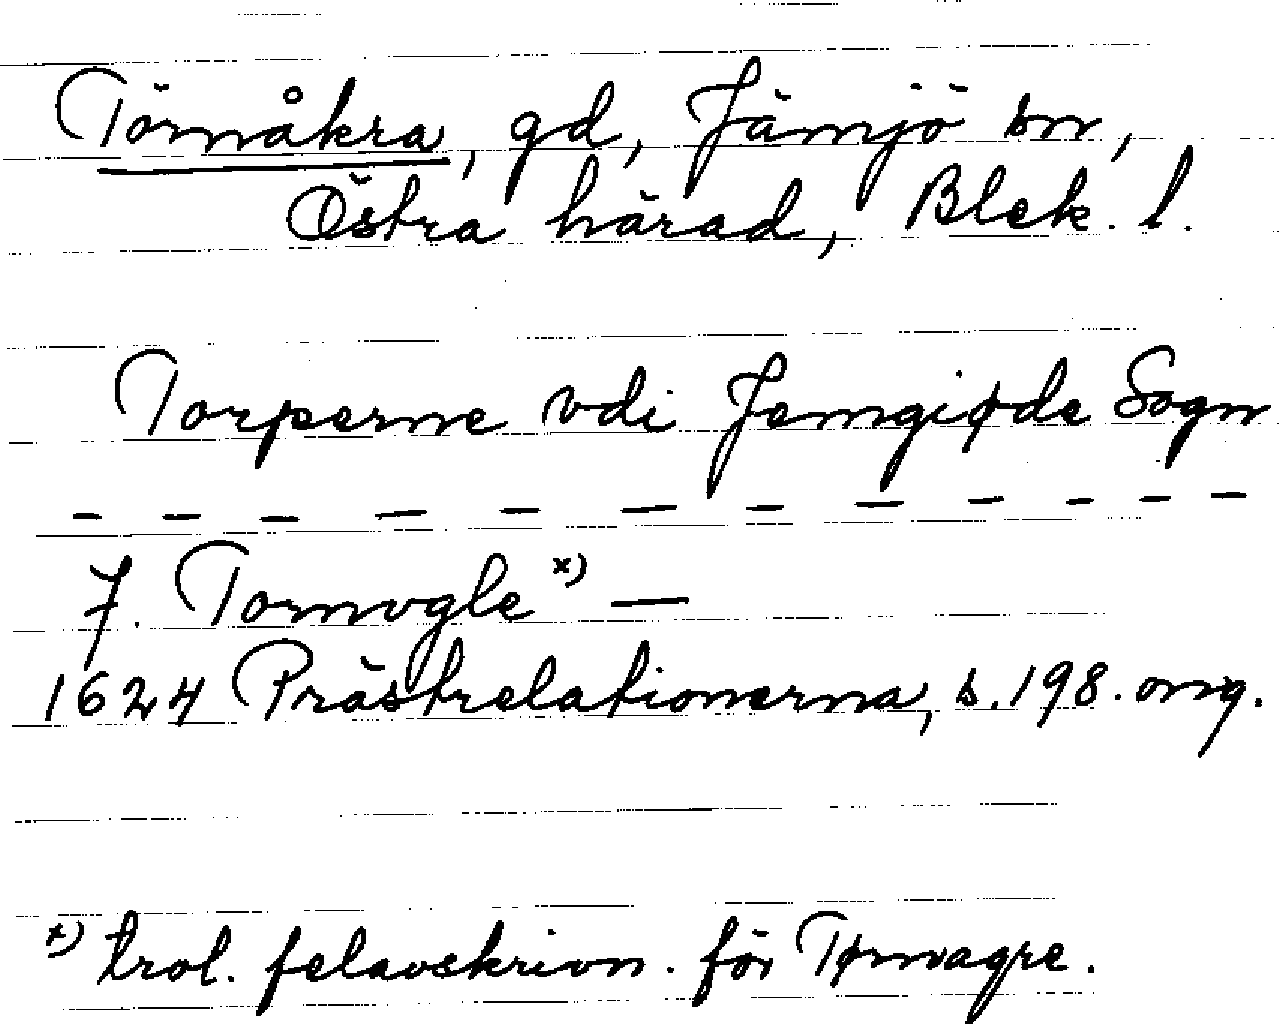 Törnåkra, gd, Jämjö sn,
Östra härad, Blek. l.
Torperne vdi Jemgiøde Sogn
— — — — — — — — — — —
7. Tornogle x) —
1624 Prästrelationerna, s. 198. omg.
x) trol. felavskrivn. för Tørnvagre.